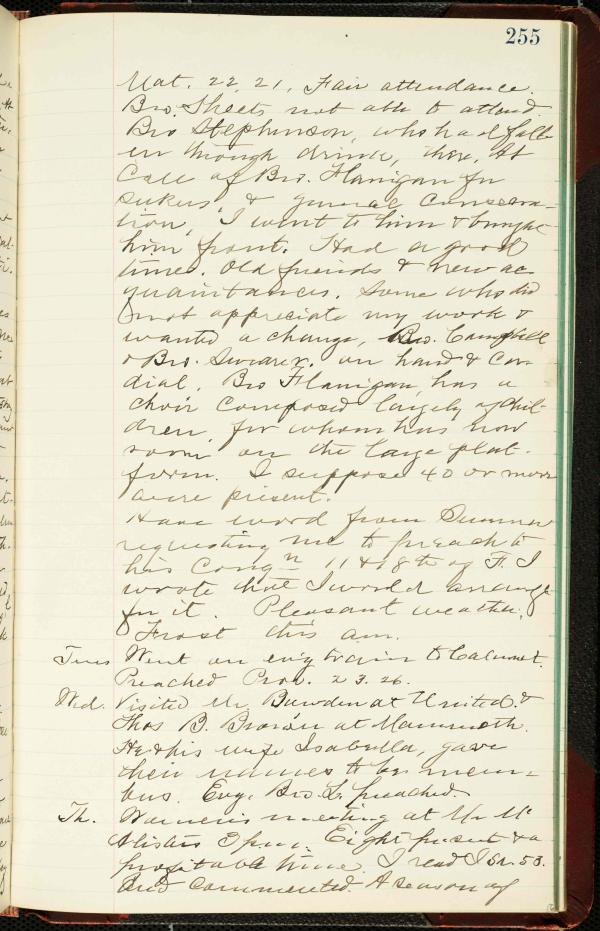 255
Mat. 22, 21, Fair attendance.
Bro. Sheets not able to attend.
Bro Stephenson, who had fall-
en through drink, there. At
Call of Bro. Flanigan for
sekers & general Consecra-
tion, I went to him & brought
him front. Had a good
time. Old friends & new ac-
quaintances. Some who did
not appreciate my work &
wanted a change, Bro. Campbell
& Bro. on hand & Cor-
dial. Bro Flanigan has a
choir Composed largely of chil-
dren, for whom has now
room on the large plat-
form. I suppose 40 or more
were present.
Have word from Sumner
requesting me to preach to
his Congn 11 & 18th of F. I
wrote that I would arrange
for it. Pleasant weather.
Frost this am.
Tues Went on evg train to Calumet.
Preached Prov. 23.26.
Wed. Visited Mr. Bawden at United &
Thos B. Brown at Mammoth.
He & his wife Isabella, gave
their names to be mem-
bers. Evg. Bro L. preached.
Th. meeting at Mr Mc
Alisters 3 pm. Eight present & a
profitable time. I read Isa. 53.
And Commented. A season of